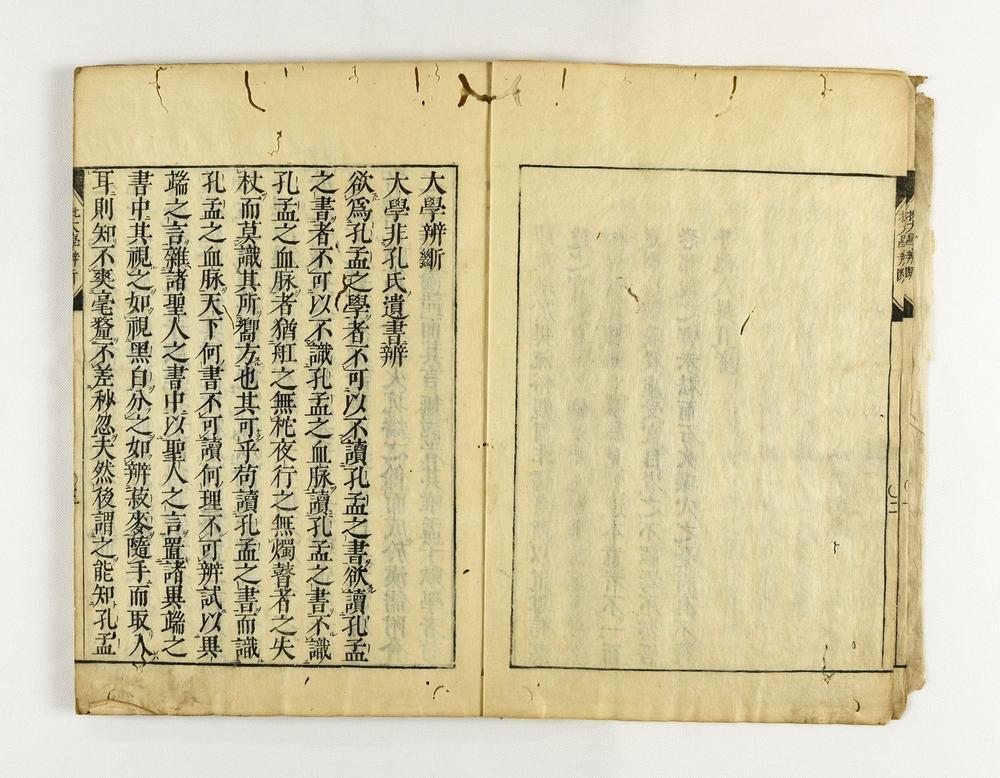 大學辨斷
大學非孔氏遺書辨
欲爲孔孟之學者不可以不讀孔孟之書欲讀孔孟
之書者不可以不識孔孟之血脉讀孔孟之書不識
孔孟之血脉者猶舡之無柁夜行之無燭瞽者之失
杖而莫識其所嚮方也其可乎苟讀孔孟之書而識
孔孟之血脉天下何書不可讀何理不可辨試以異
端之言雜諸聖人之書中以聖人之言置諸異端之
書中其視之如視黑白分之如辨菽麥隨手而取入
耳則知不爽毫釐不差秒忽夫然後謂之能知孔孟